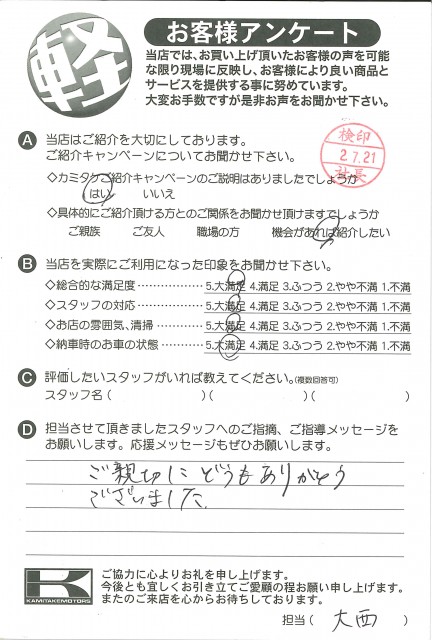 軽
お客様アンケート
当店では、お買い上げ頂いたお客様の声を可能
な限り現場に反映し、お客様により良い商品と
サービスを提供する事に努めています。
大変お手数ですが是非お声をお聞かせ下さい。
検印
2 7.21
社長
A 当店はご紹介を大切にしております。
ご紹介キャンペーンについてお聞かせ下さい。
◇カミタケご紹介キャンペーンのご説明はありましたでしょうか
はい いいえ
◇具体的にご紹介頂ける方とのご関係をお聞かせ頂けますでしょうか
ご親族 ご友人 職場の方 機会があれば紹介したい
B 当店を実際にご利用になった印象をお聞かせ下さい。
◇総合的な満足度……………5.大満足 4.満足 3.ふつう 2.やや不満 1.不満
◇スタッフの対応……………5.大満足 4.満足 3.ふつう 2.やや不満 1.不満
◇お店の雰囲気、清掃…………5.大満足 4.満足 3.ふつう 2.やや不満 1.不満
◇納車時のお車の状態…………5.大満足 4.満足 3.ふつう 2.やや不満 1.不満
C 評価したいスタッフがいれば教えてください。(複数回答可)
スタッフ名( )( )( )
D 担当させて頂きましたスタッフへのご指摘、ご指導メッセージを
お願いします。応援メッセージもぜひお願いします。
ご親切にどうもありがとう
ございました。
K
KAMITAKEMOTORS
ご協力に心よりお礼を申し上げます。
今後とも宜しくお引き立てご愛顧の程お願い申し上げます。
またのご来店を心からお待ちしております。
担当( 大西 )